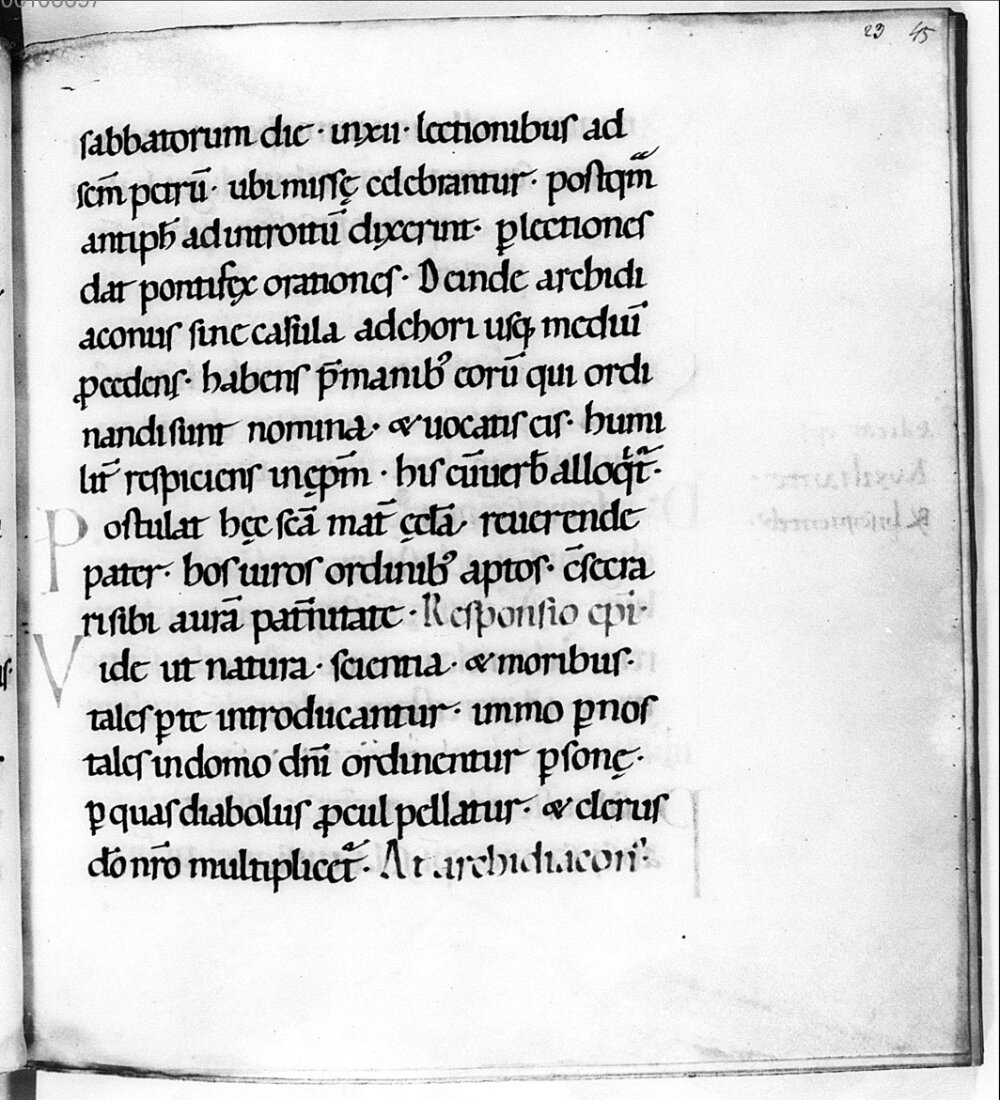 23 45
sabbatorum die · in xii · lectionibus ad
scm̄ petrū · ubi missę celebrantur · postqm̄
antiph̄ ad introitū dixerint · ꝑ lectiones
dat pontifex orationes · Deinde archidi
aconus sine casula ad chori usq; mediū
ꝓcedens · habens p̄ manib; eorū qui ordi
nandi sunt nomina · & uocatis eis · humi
lit̄ respiciens in ępm̄ · his cū uerb̄ alloqͣt̄ ·
Postulat hęc sc̄ā mat̄ ęcl̄ā reuerende
pater · hos uiros ordinib; aptos · c̄secra
ri sibi a ur̄ā pat̄nitate · Responsio epī ·
Vide ut natura · scientia · & moribus ·
tales ꝑ te introducantur · immo ꝑ nos
tales in domo dn̄i ordinentur ꝑsonę ·
ꝑ quas diabolus ꝓcul pellatur · & clerus
dō nr̄o multiplicet̄ · At archidiacon̄ :